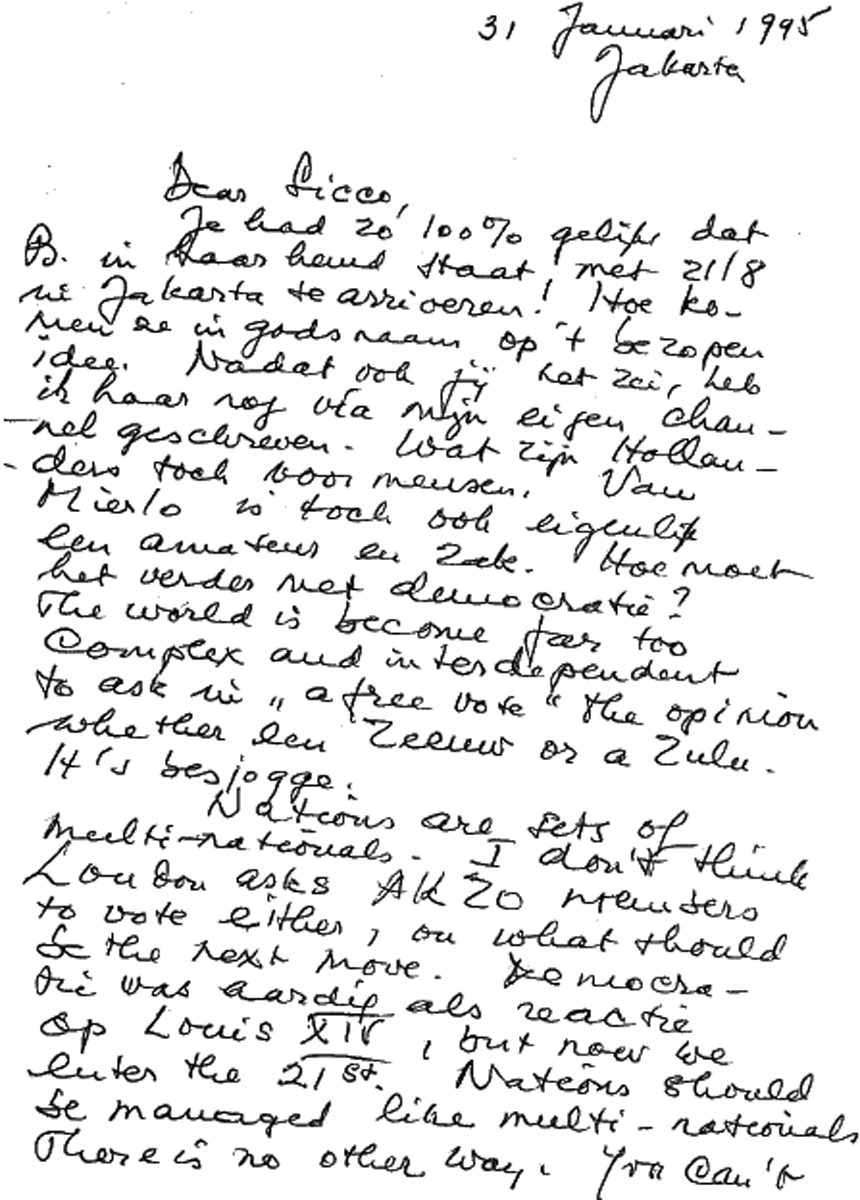 31 Januari 1995
Jakarta
Dear Sicco,
Je had zo 100% gelijk dat
B. in haar hemd staat met 21/8
in Jakarta te arriveren! Hoe ko-
men ze in godsnaam op 't bezopen
idee. Nadat ook jij het zei, heb
ik haar nog via mijn eigen chan-
nel geschreven. Wat zijn Hollan-
ders toch voor mensen. Van
Mierlo is toch ook eigenlijk
een amateur en zak. Hoe moet
het verder met democratie?
The world is become far too
complex and interdependent
to ask in „a free vote" the opinion
whether een Zeeuw or a Zulu.
It's besjogge.
Nations are sets of
multi-nationals. I don't think
London asks AKZO members
to vote either, on what should
be the next move. Democra-
tie was aardig als reactie
op Louis XIV, but now we
enter the 21st. Nations should
be managed like multi-nationals
There is no other way. You can't